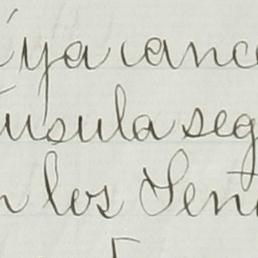 ya canc
úsula seg
n los Señ